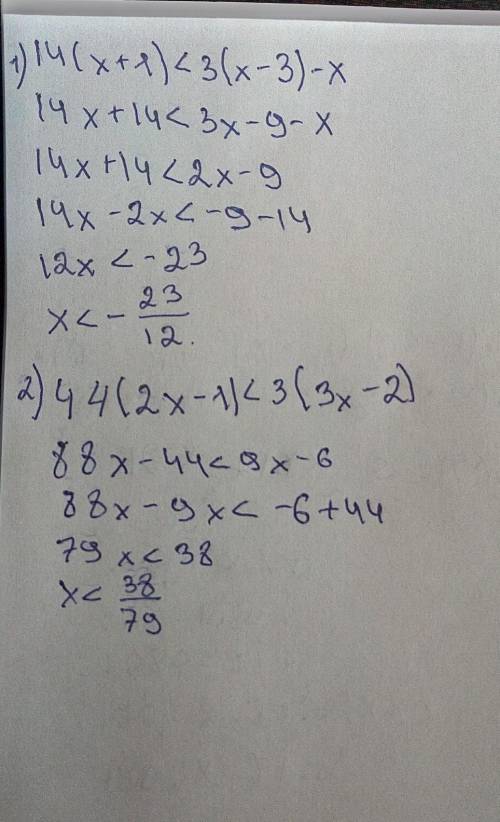 1) 14(x+1)<3(x-3)-x
14x+14<3x-9-x
14x+14<2x-9
14x-2x<-9-14
12x<-23
x<-23/12.
2) 44(2x-1)<3(3x-2)
88x-44<9x-6
88x-9x<-6+44
79x<38
x<38/79